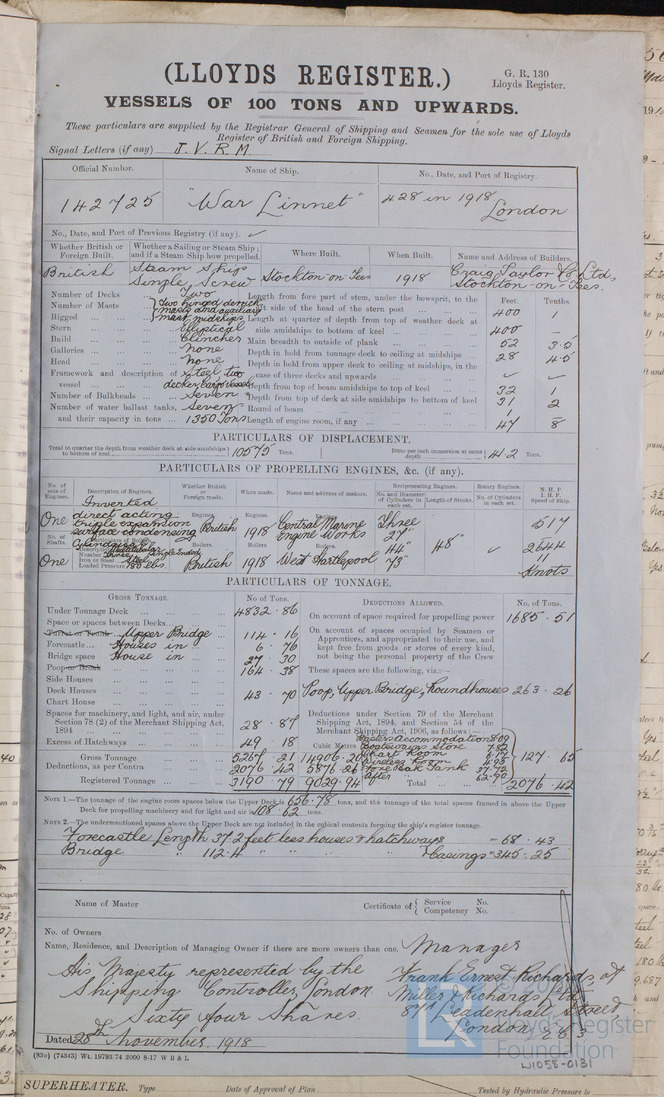 (LLOYDS REGISTER.)
G. R. 130
Lloyds Register.
VESSELS OF 100 TONS AND UPWARDS.
These particulars are supplied by the Registrar General of Shipping and Seamen for the sole use of Lloyds
Register of British and Foreign Shipping.
Signal Letters (if any) J.V.R.M.
Official Number. Name of Ship. No., Date, and Port of Registry.
142725 "War Linnet" 428 in 1918
London
No., Date, and Port of Previous Registry (if any).
Whether British or Foreign Built. Whether a Sailing or Steam Ship; and if a Steam Ship how propelled. Where Built. When Built. Name and Address of Builders.
British Steam Ship Single Screw Stockton-on-Tees 1918 Craig, Taylor Co Ltd, Stockton-on-Tees.
Number of Decks Two
Number of Masts Two hinged derrick masts and auxiliary mast midships
Rigged
Stern Elliptical
Build Clincher
Galleries None
Head None
Framework and description of vessel Steel two decker cargo vessel
Number of Bulkheads Seven
Number of water ballast tanks, Seven
and their capacity in tons 1350 Tons
Feet. Tenths
Length from fore part of stem, under the bowsprit, to the aft side of the head of the stern post 400 1
Length at quarter of depth from top of weather deck at side amidships to bottom of keel 400 -
Main breadth to outside of plank 52 3.5
Depth in hold from tonnage deck to ceiling at midships 28 4.5
Depth in hold from upper deck to ceiling at midships, in the case of three decks and upwards
Depth from top of beam amidships to top of keel 32 1
Depth from top of deck at side amidships to bottom of keel 31 2
Round of beam 1
Length of engine room, if any 47 8
PARTICULARS OF DISPLACEMENT.
Total to quarter the depth from weather deck at side amidships to bottom of keel 10575 Tons. Ditto per inch immersion at same depth 41.2 Tons.
PARTICULARS OF PROPELLING ENGINES, &c. (if any).
No. of sets of Engines. Description of Engines. Whether British or Foreign made. When made. Name and address of makers. Reciprocating Engines. Rotary Engines. N.H.P. I.H.P. Speed of Ship.
No. and Diameter of Cylinders in each set. Length of Stroke. No. of Cylinders in each set.
One Inverted direct acting triple expansion surface condensing Engines British Engines 1918 Central Marine Engine Works Three 27" 44" 73" 48" 517
2544
11 Knots
No. of Shafts.
One Number Three
Iron or Steel Steel
Loaded Pressure 180 lbs.
Boilers British Boilers 1918 West Hartlepool
PARTICULARS OF TONNAGE.
GROSS TONNAGE. No. of Tons. DEDUCTIONS ALLOWED. No. of Tons.
Under Tonnage Deck 4832.86
Space or spaces between Decks
Turret or Trunk Upper Bridge 114.16
Forecastle Houses in 6.76
Bridge space House in 27.30
Poop or Break 164.38
Side Houses
Deck Houses 43.70
Chart House
Spaces for machinery, and light, and air, under Section 78 (2) of the Merchant Shipping Act, 1894 28.87
Excess of Hatchways 49.18
On account of space required for propelling power 1685.51
On account of spaces occupied by Seamen or Apprentices, and appropriated to their use, and kept free from goods or stores of every kind, not being the personal property of the Crew
These spaces are the following, viz.:—
Poop, Upper Bridge, Roundhouses 263.26
Deductions under Section 79 of the Merchant Shipping Act, 1894, and Section 54 of the Merchant Shipping Act, 1906, as follows:—
Cubic Metres.
Masters Accommodation 8.09
Boatswains Store 7.82
Chart Room
Wireless Room 4.98
Fore Peak Tank
After " 62.90
127.65
Gross Tonnage 5267.21 14906.20
Deductions, as per Contra 2076.42 5876.26
Registered Tonnage 3190.79 9029.94
Total 2076.42
NOTE 1.—The tonnage of the engine room spaces below the Upper Deck is 626.78 tons, and the tonnage of the total spaces framed in above the Upper
Deck for propelling machinery and for light and air is 108.62 tons.
NOTE 2.—The undermentioned spaces above the Upper Deck are not included in the cubical contents forming the ship's register tonnage.
Forecastle Length 37.2 feet less houses & hatchways - 68.43
Bridge " 112.4 " " " & casings - 345.25
Name of Master Certificate of { Service No. Competency No.
No. of Owners
Name, Residence, and Description of Managing Owner if there are more owners than one.
Manager
His Majesty represented by the
Shipping Controller, London
Sixty four Shares.
Frank Ernest Richards, of
Miller & Richards Ltd
Leadenhall Street
London, E.C.3
Dated 28th November, 1918
(83o) (74343) Wt. 19793/74 2000 8-17 W B & L
Lloyd's Register
Foundation
W1058-0131
SUPERHEATER. Type Date of Approval of Plan Tested by Hydraulic Pressure to